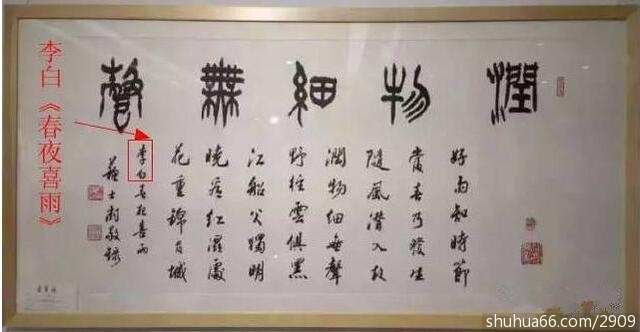 潤物細無聲
好雨知時節
當春乃發生
隨風潛入夜
潤物細無聲
野徑雲俱黑
江船火獨明
曉看紅濕處
花重錦官城
李白春夜喜雨
蘇士澍敬録
李白《春夜喜雨》
shuhua66.com/2909